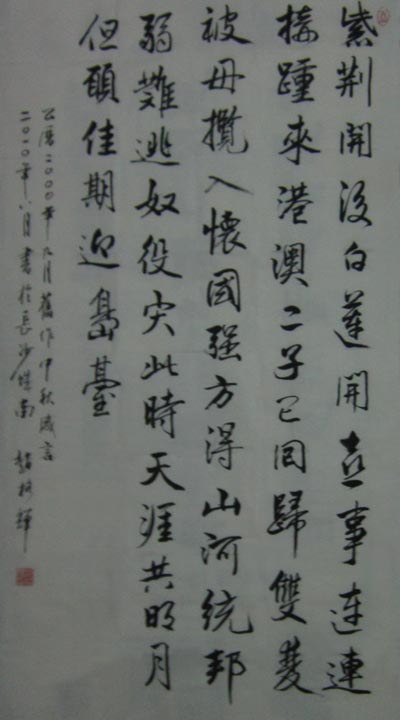 紫荆開後白蓮開喜事连連
接踵來港澳二子已回歸雙雙
被母攬入懷國强方得山河统邦
弱難逃奴役灾此時天涯共明月
但願佳期迎島臺
公曆二000年九月舊作中秋感言
二0一0年八月書於長沙南輝